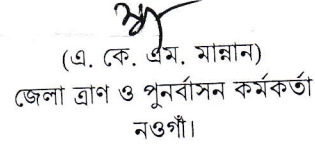 (এ. কে. এম. মান্নান)
জেলা ত্রাণ ও পুনর্বাসন কর্মকর্তা
নওগাঁ।